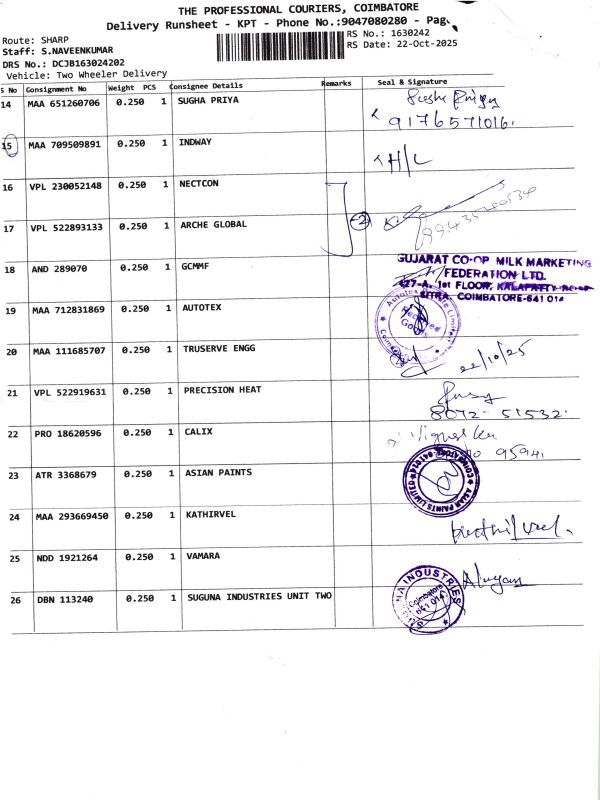 THE PROFESSIONAL COURIERS, COIMBATORE
Delivery Runsheet - KPT - Phone No.:9047080280 - Page
Route: SHARP
RS No.: 1630242
Staff: S.NAVEENKUMAR
RS Date: 22-Oct-2025
DRS No.: DCJB163024202
Vehicle: Two Wheeler Delivery
S No Consignment No Weight PCS Consignee Details Remarks Seal & Signature
14 MAA 651260706 0.250 1 SUGHA PRIYA
9176571016
15 MAA 709509891 0.250 1 INDWAY H/L
16 VPL 230052148 0.250 1 NECTCON
17 VPL 522893133 0.250 1 ARCHE GLOBAL 2
18 AND 289070 0.250 1 GCMMF
GUJARAT CO-OP MILK MARKETING
FEDERATION LTD.
1st FLOOR, KALAPATTY
SITRA, COIMBATORE-641 014
19 MAA 712831869 0.250 1 AUTOTEX
Received
Goods
20 MAA 111685707 0.250 1 TRUSERVE ENGG 22/10/25
21 VPL 522919631 0.250 1 PRECISION HEAT
8072-51532
22 PRO 18620596 0.250 1 CALIX
95941
23 ATR 3368679 0.250 1 ASIAN PAINTS
ASIAN PAINTS LIMITED
24 MAA 293669450 0.250 1 KATHIRVEL
25 NDD 1921264 0.250 1 VAMARA
26 DBN 113240 0.250 1 SUGUNA INDUSTRIES UNIT TWO
INDUSTRIES
Coimbatore
641 014